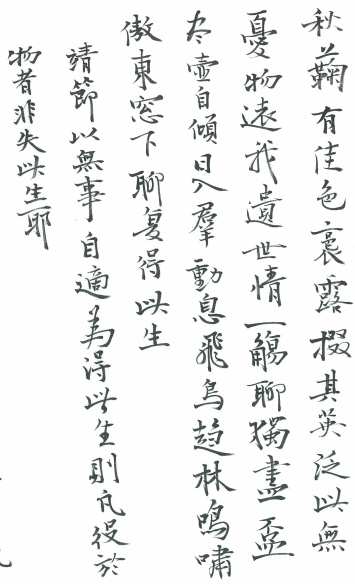 秋菊有佳色裛露掇其英泛此無
憂物遠我遺世情一觴聊獨盡盃
尽壺自傾日入羣動息飛鳥趨林鳴嘯
傲東窓下聊复得此生
靖節以無事自適為得此生則凡役於
物者非失此生耶